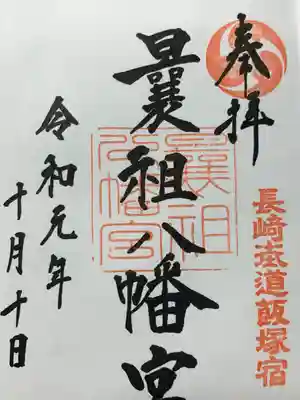 奉拝
長崎街道飯塚宿
曩祖八幡宮
曩祖
八幡宮
令和元年
十月十日